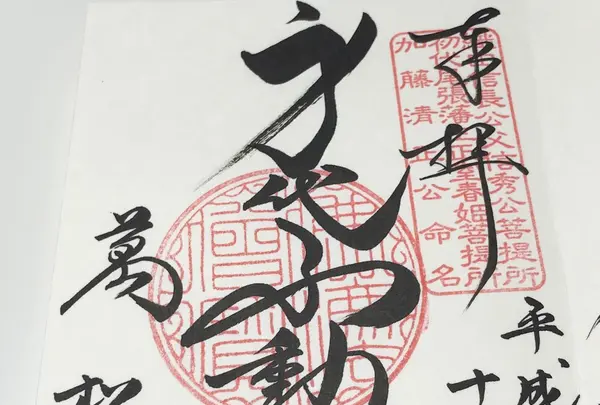 奉拝
織田信長公父信秀公菩提所
初代尾張藩主正室春姫菩提所
加藤清正公命名
平成
十
身代不動
萬松